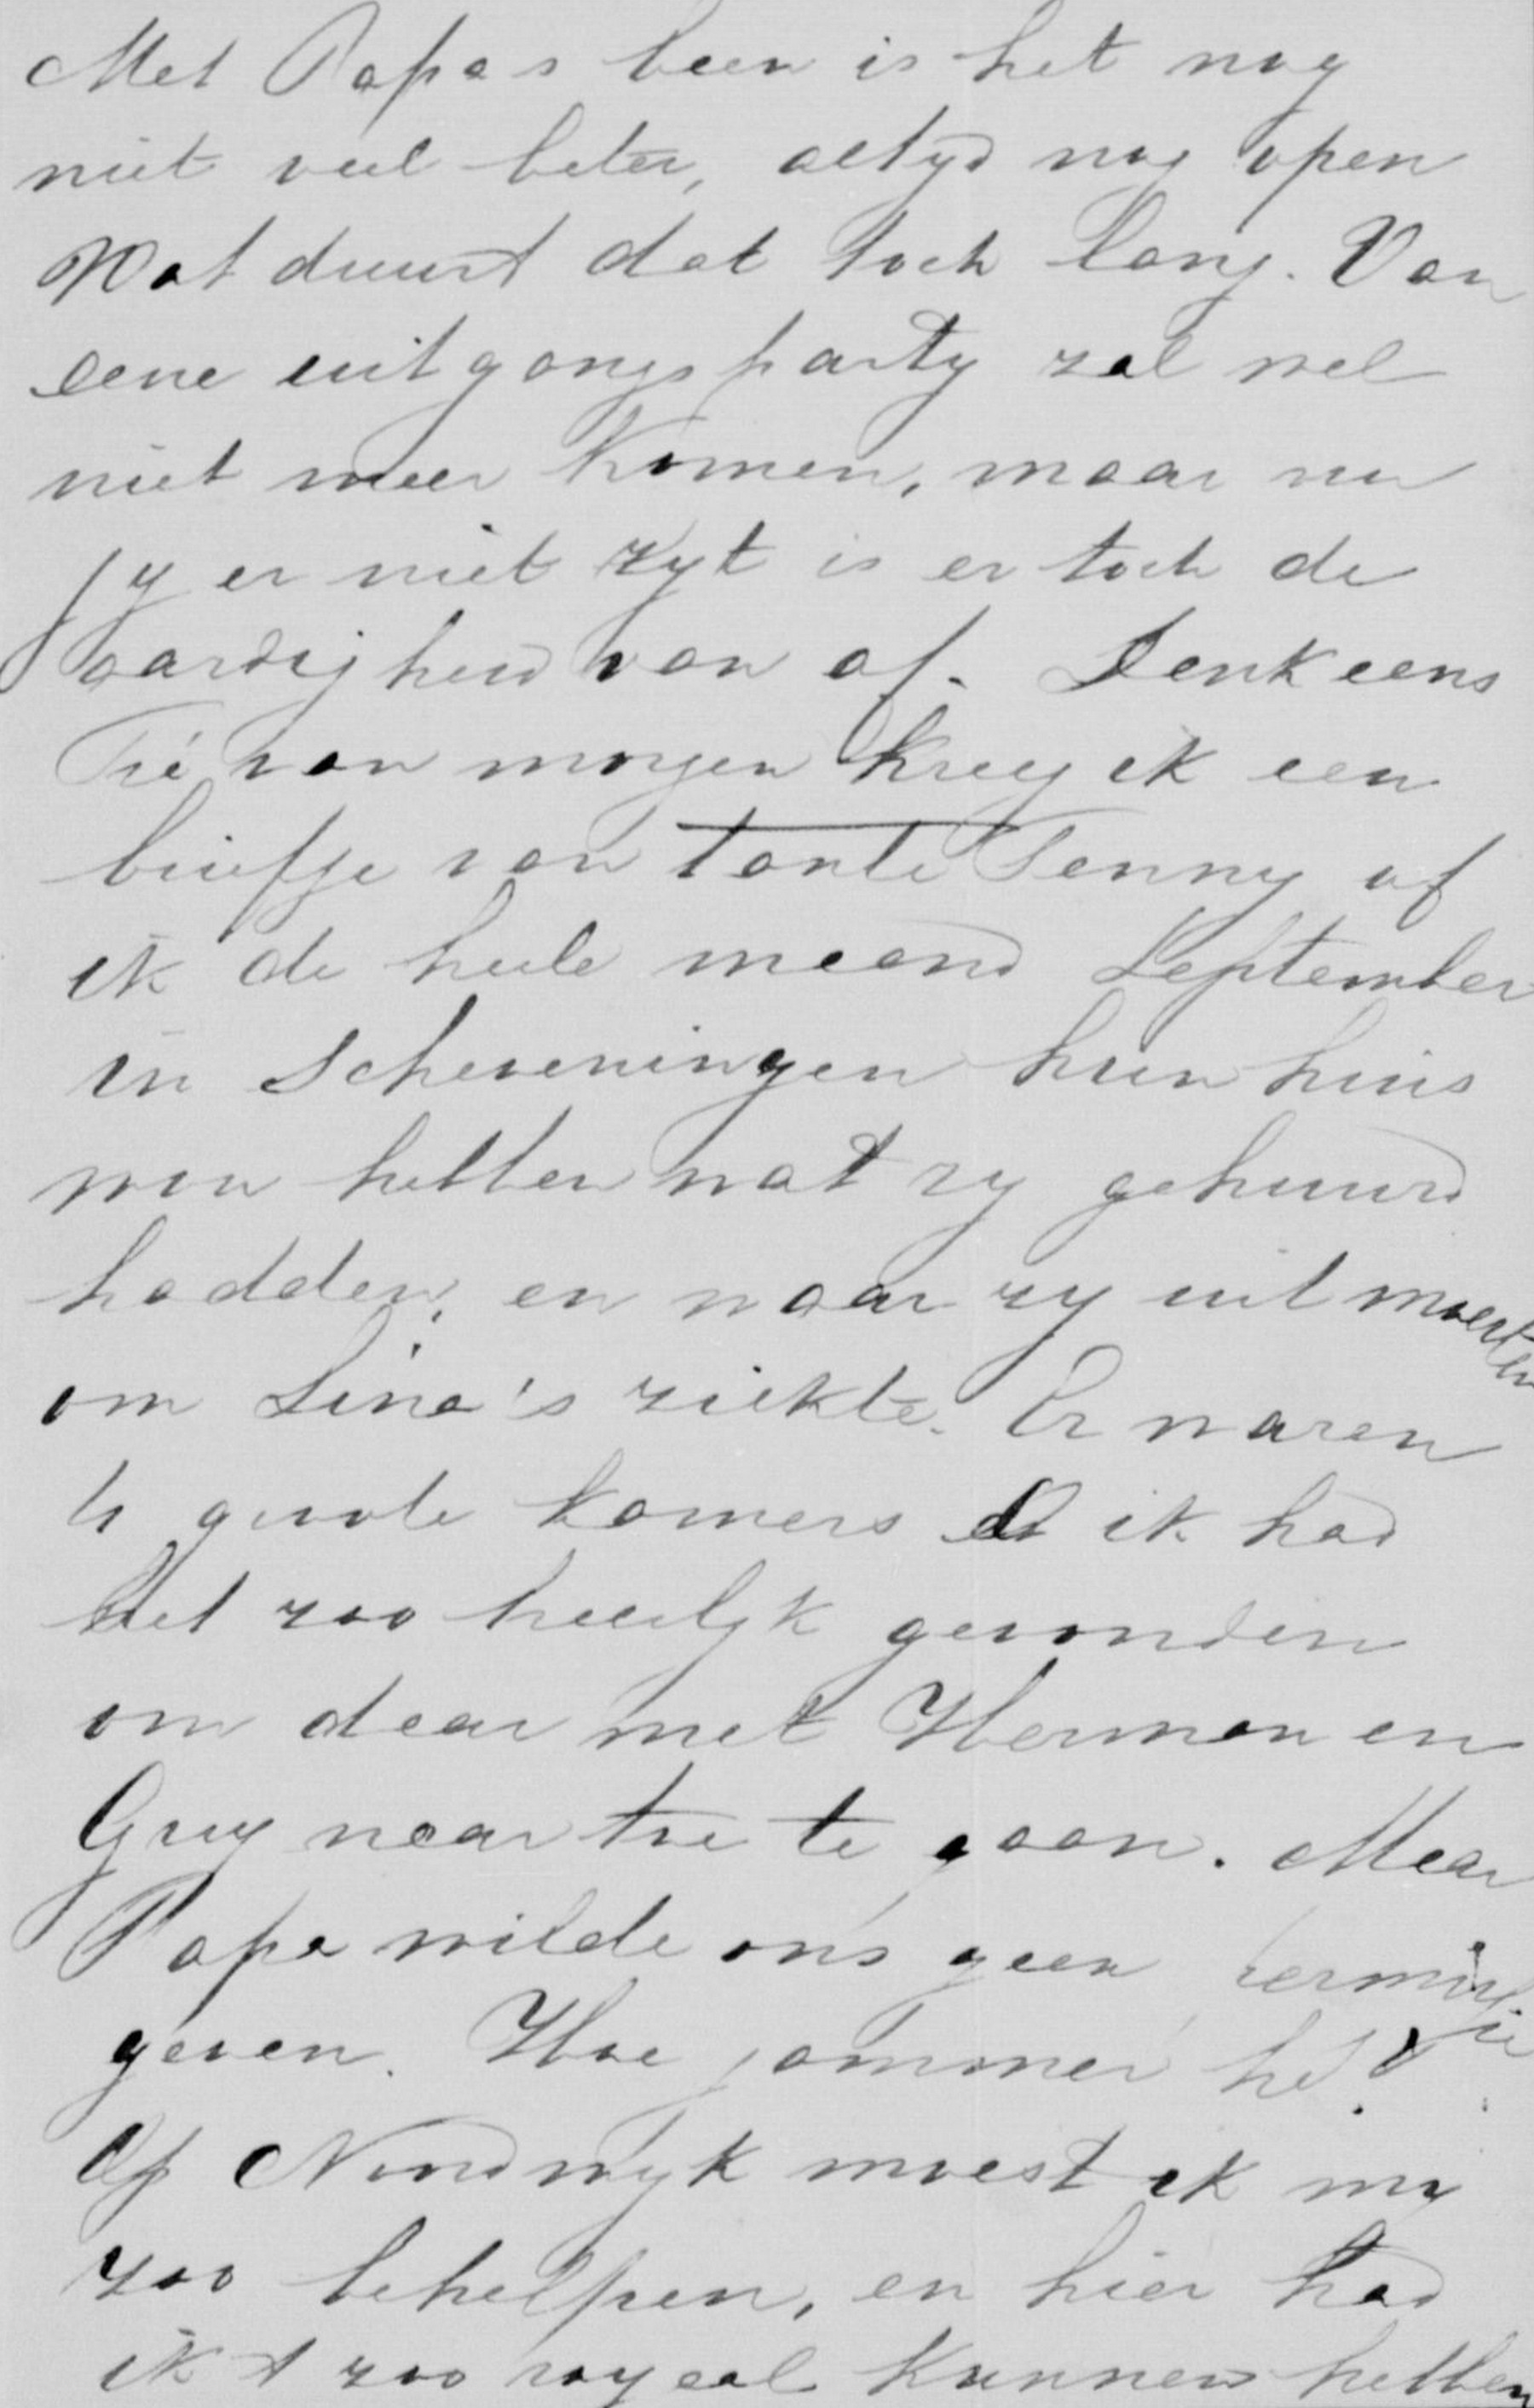 Met Papa's been is het nog
niet veel beter, altyd nog open
Wat duurt dat toch lang. Van
eene uitgangsparty zal wel
niet meer komen, maar nu
jy er niet zyt is er toch de
aardigheid van af. Denk eens
Tré van morgen kreeg ik een
briefje van tante Jenny of
ik de heele maand September
in Scheveningen hun huis
wou hebben wat zy gehuurd
hadden, en waar zy uit moesten
om Lina's ziekte. Er waren
4 groote kamers & ik had
het zoo heerlyk gevonden
om daar met Herman en
Guy naar toe te gaan. Maar
Papa wilde ons geen permissie
geven. Hoe jammer hé?
Op Noordwyk moest ik my
zoo behelpen, en hier had
ik 't zoo royaal kunnen hebben